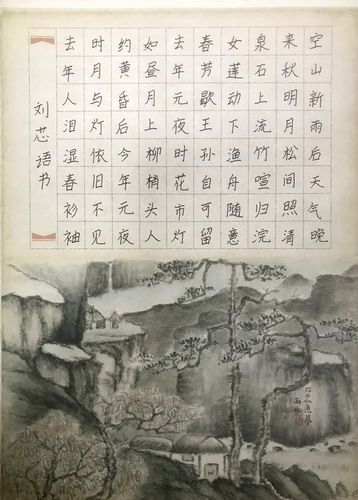 空山新雨后天气晚
来秋明月松间照清
泉石上流竹喧归浣
女莲动下渔舟随意
春芳歇王孙自可留
去年元夜时花市灯
如昼月上柳梢头人
约黄昏后今年元夜
时月与灯依旧不见
去年人泪湿春衫袖
刘芯语书